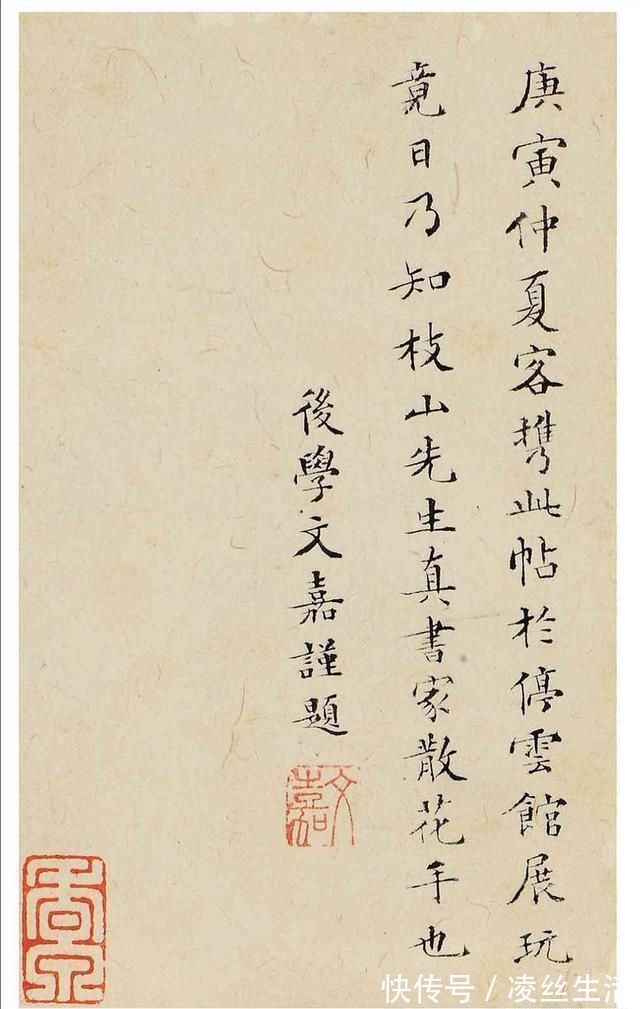 庚寅仲夏客携此帖於停雲館展玩
竟日乃知枝山先生真書家散花手也
後學文嘉謹題
文嘉
快传号/凌丝生活